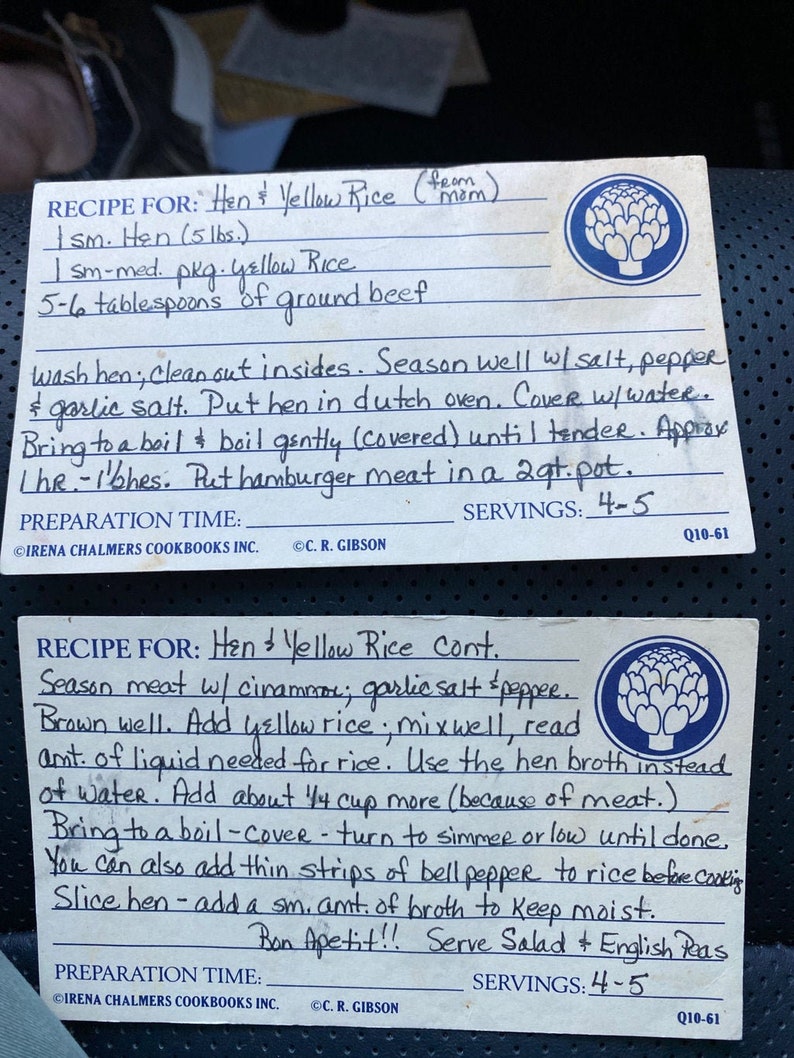 RECIPE FOR: Hen & Yellow Rice (from mom)
1 sm. Hen (5 lbs.)
1 sm-med. pkg. yellow Rice
5-6 tablespoons of ground beef
Wash hen; clean out insides. Season well w/ salt, pepper
& garlic salt. Put hen in dutch oven. Cover w/ water.
Bring to a boil & boil gently (covered) until tender. Approx
1 hr. - 1½ hrs. Put hamburger meat in a 2 qt. pot.
PREPARATION TIME: SERVINGS: 4-5
©IRENA CHALMERS COOKBOOKS INC. ©C. R. GIBSON Q10-61
RECIPE FOR: Hen & Yellow Rice Cont.
Season meat w/ cinammon; garlic salt & pepper.
Brown well. Add yellow rice; mix well, read
amt. of liquid needed for rice. Use the hen broth instead
of water. Add about 1/4 cup more (because of meat.)
Bring to a boil - cover - turn to simmer or low until done.
You can also add thin strips of bell pepper to rice before cooking
Slice hen - add a sm. amt. of broth to keep moist.
Bon Apetit!! Serve Salad & English Peas
PREPARATION TIME: SERVINGS: 4-5
©IRENA CHALMERS COOKBOOKS INC. ©C. R. GIBSON Q10-61